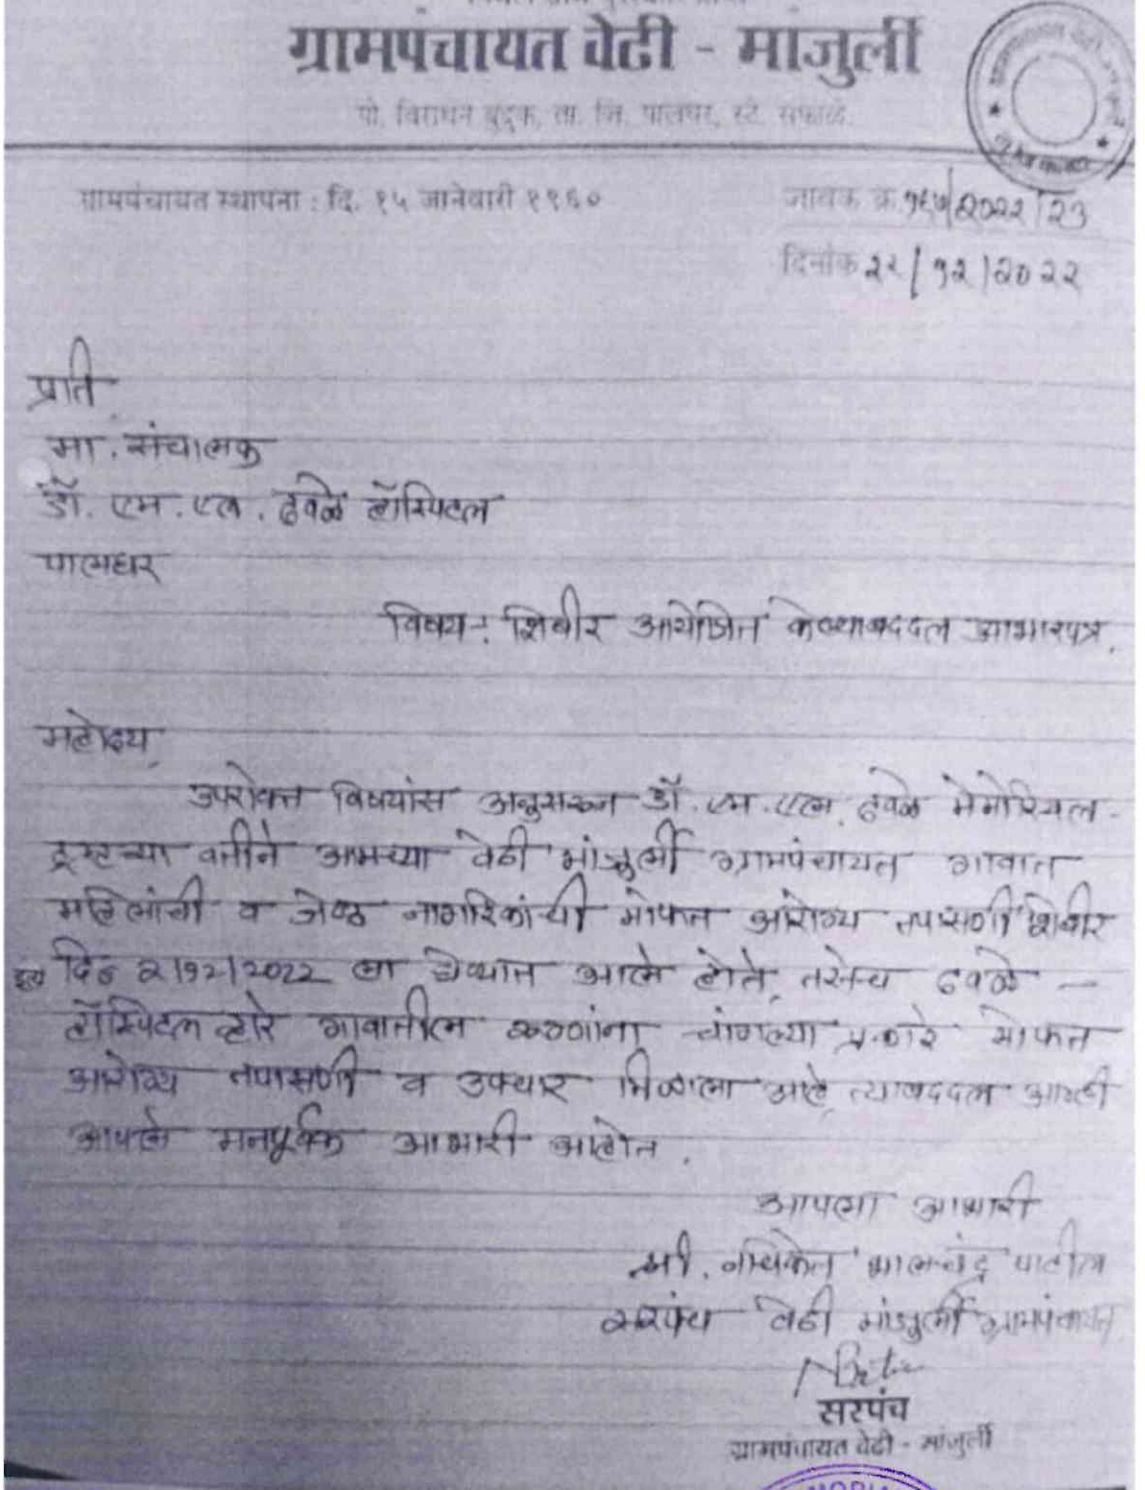 ग्रामपंचायत वेढी - मांजुर्ली
पो. विराथन बुद्रुक, ता. जि. पालघर, स्टे. सफाळे.
ग्रामपंचायत स्थापना : दि. १५ जानेवारी १९६०
जावक क्र. १६७/२०२२/२३
दिनांक २२/१२/२०२२
प्रति
मा. संचालक
डॉ. एम. एल. ढवळे हॉस्पिटल
पालघर
विषय :- शिबीर आयोजित केल्याबददल आभारपत्र.
महोदय,
उपरोक्त विषयांस अनुसरुन डॉ. एम. एल. ढवळे मेमोरियल -
ट्रस्टच्या वतीने आमच्या वेढी मांजुर्ली ग्रामपंचायत गावात
महिलांची व जेष्ठ नागरिकांची मोफत आरोग्य तपासणी शिबीर
दि० २/१२/२०२२ ला घेण्यात आले होते, तसेच ढवळे -
हॉस्पिटल द्वारे गावातील रुग्णांना चांगल्या प्रकारे मोफत
आरोग्य तपासणी व उपचार मिळाला आहे, त्याबददल आम्ही
आपले मनपूर्वक आभारी आहोत.
आपला आभारी
श्री. नचिकेत भालचंद्र पाटील
सरपंच वेढी मांजुर्ली ग्रामपंचायत
सरपंच
ग्रामपंचायत वेढी - मांजुर्ली